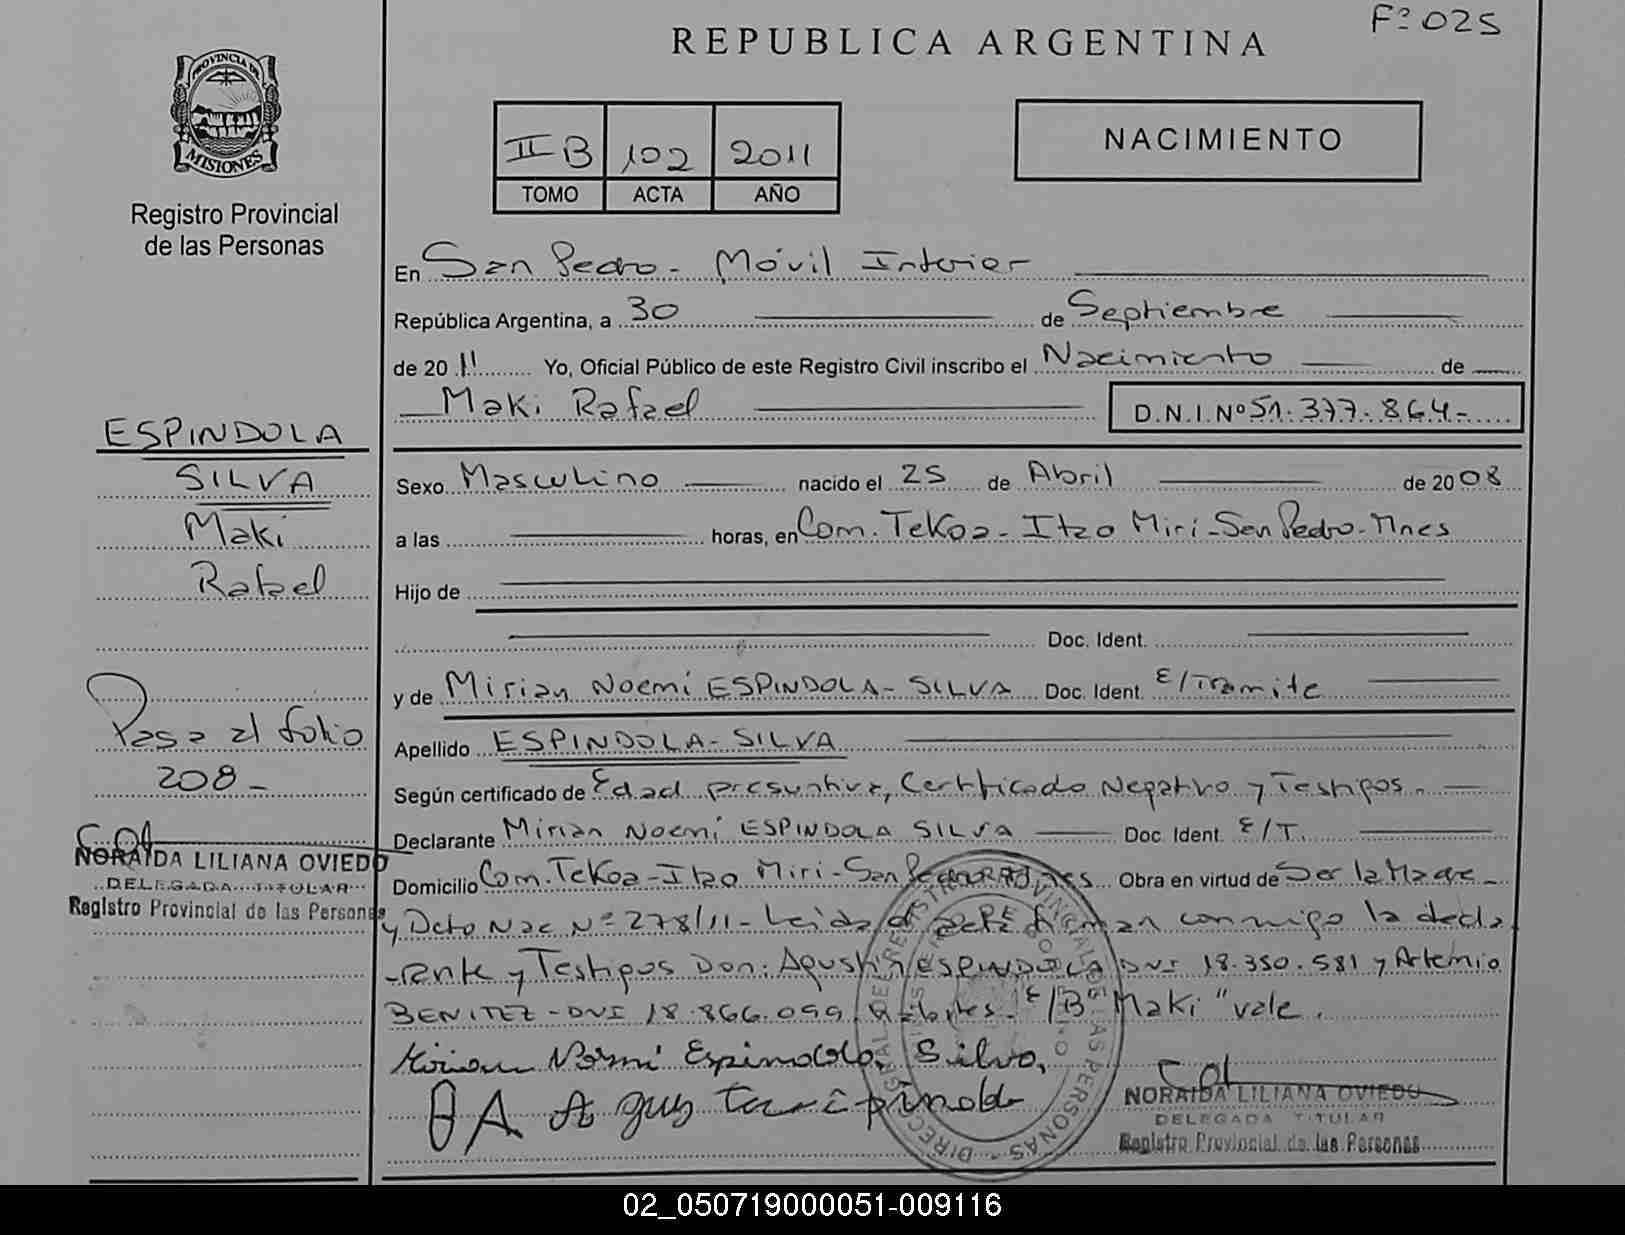 Fº 025
REPUBLICA ARGENTINA
PROVINCIA DE
MISIONES
Registro Provincial
de las Personas
II B 102 2011
TOMO ACTA AÑO
NACIMIENTO
En San Pedro - Móvil Interior
República Argentina, a 30 de Septiembre
de 2011 Yo, Oficial Público de este Registro Civil inscribo el Nacimiento de
Maki Rafael D.N.I. Nº 51.377.864-
ESPINDOLA
SILVA
Maki
Rafael
Sexo Masculino nacido el 25 de Abril de 2008
a las horas, en Com. Tekoa - Itzo Miri - San Pedro - Mnes
Hijo de
Doc. Ident.
y de Mirian Noemí ESPINDOLA - SILVA Doc. Ident. E/Tramite
Pasa al folio
208 -
Apellido ESPINDOLA - SILVA
Según certificado de Edad presuntiva, Certificado Negativo y Testigos.
Declarante Mirian Noemí ESPINDOLA SILVA Doc. Ident. E/T.
Domicilio Com. Tekoa - Itzo Miri - San Pedro Mnes Obra en virtud de Ser la Madre -
y Dcto Nac Nº 278/11 - Leida el acta firman conmigo la decla
-rante y Testigos Don: Agustin ESPINDOLA DNI 18.350.581 y Artemio
BENITEZ - DNI 18.866.099. Habiles. E/B "Maki" vale.
Mirian Noemi Espindola, Silva,
BA Agustin Espindola
NORAIDA LILIANA OVIEDO
DELEGADA TITULAR
Registro Provincial de las Personas
NORAIDA LILIANA OVIEDO
DELEGADA TITULAR
Registro Provincial de las Personas
02_050719000051-009116